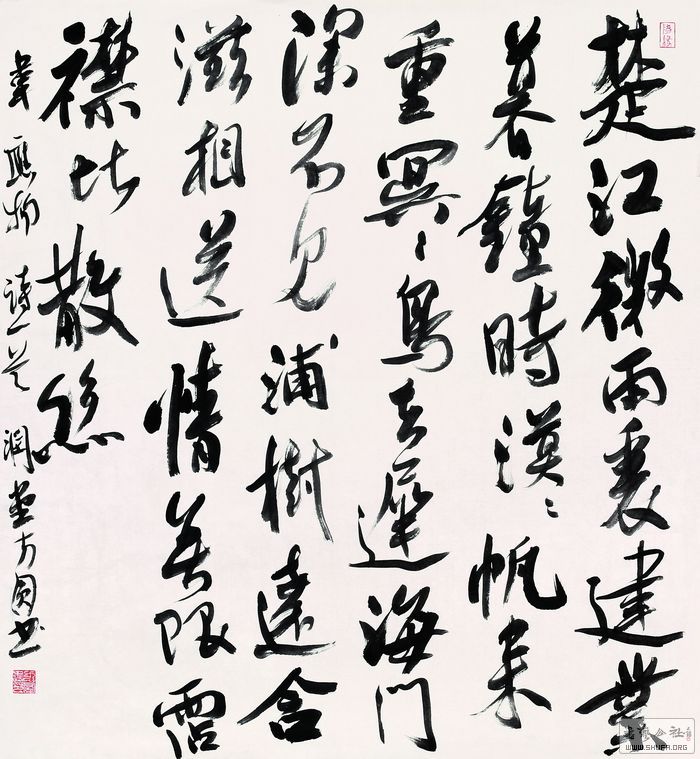 楚江微雨裏建業
暮鐘時漠〻帆來
重冥〻鳥去遲海門
深不見浦樹遠含
滋相送情無限霑
襟比散絲
韋應物詩一首 潤堂方圓書